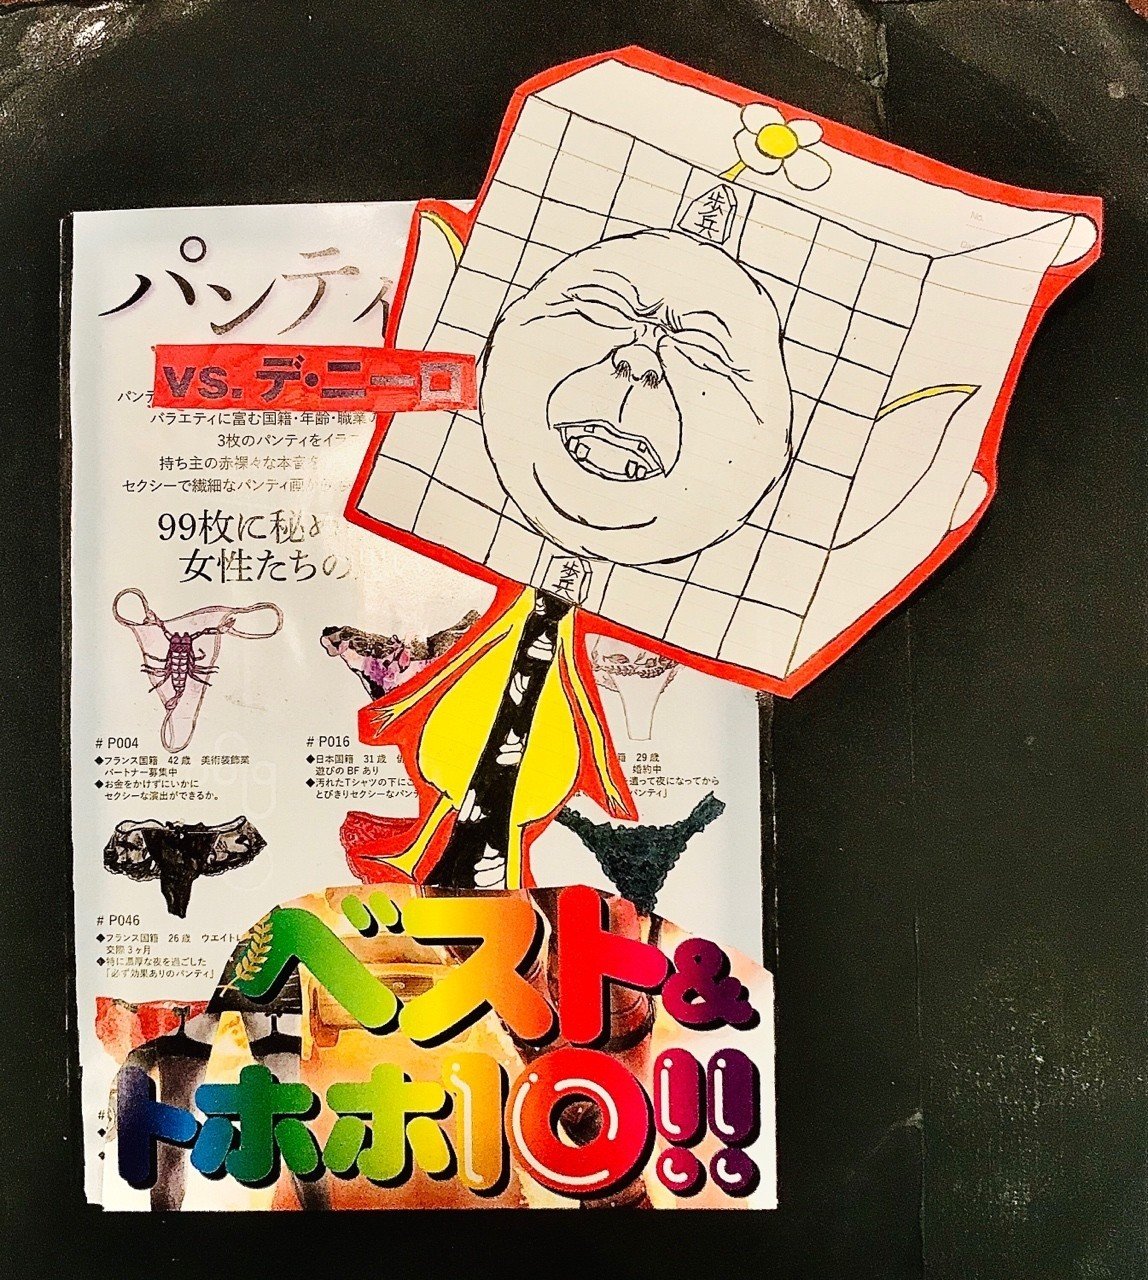 パンティ
vs.デ・ニーロ
パンテ
バラエティに富む国籍・年齢・職業
3枚のパンティをイラ
持ち主の赤裸々な本音を
セクシーで繊細なパンティ画から
99枚に秘め
女性たちの
歩兵
歩兵
No.
# P004
◆フランス国籍 42歳 美術装飾業
パートナー募集中
◆お金をかけずにいかに
セクシーな演出ができるか。
# P016
◆日本国籍 31歳
遊びのBFあり
◆汚れたTシャツの下にこ
とびきりセクシーなパン
籍 29歳
婚約中
遣って夜になってから
パンティ」
# P046
◆フランス国籍 26歳 ウエイトレ
交際3ヶ月
◆特に濃厚な夜を過ごした
「必ず効果ありのパンティ」
ベスト&
トホホ10!!
#